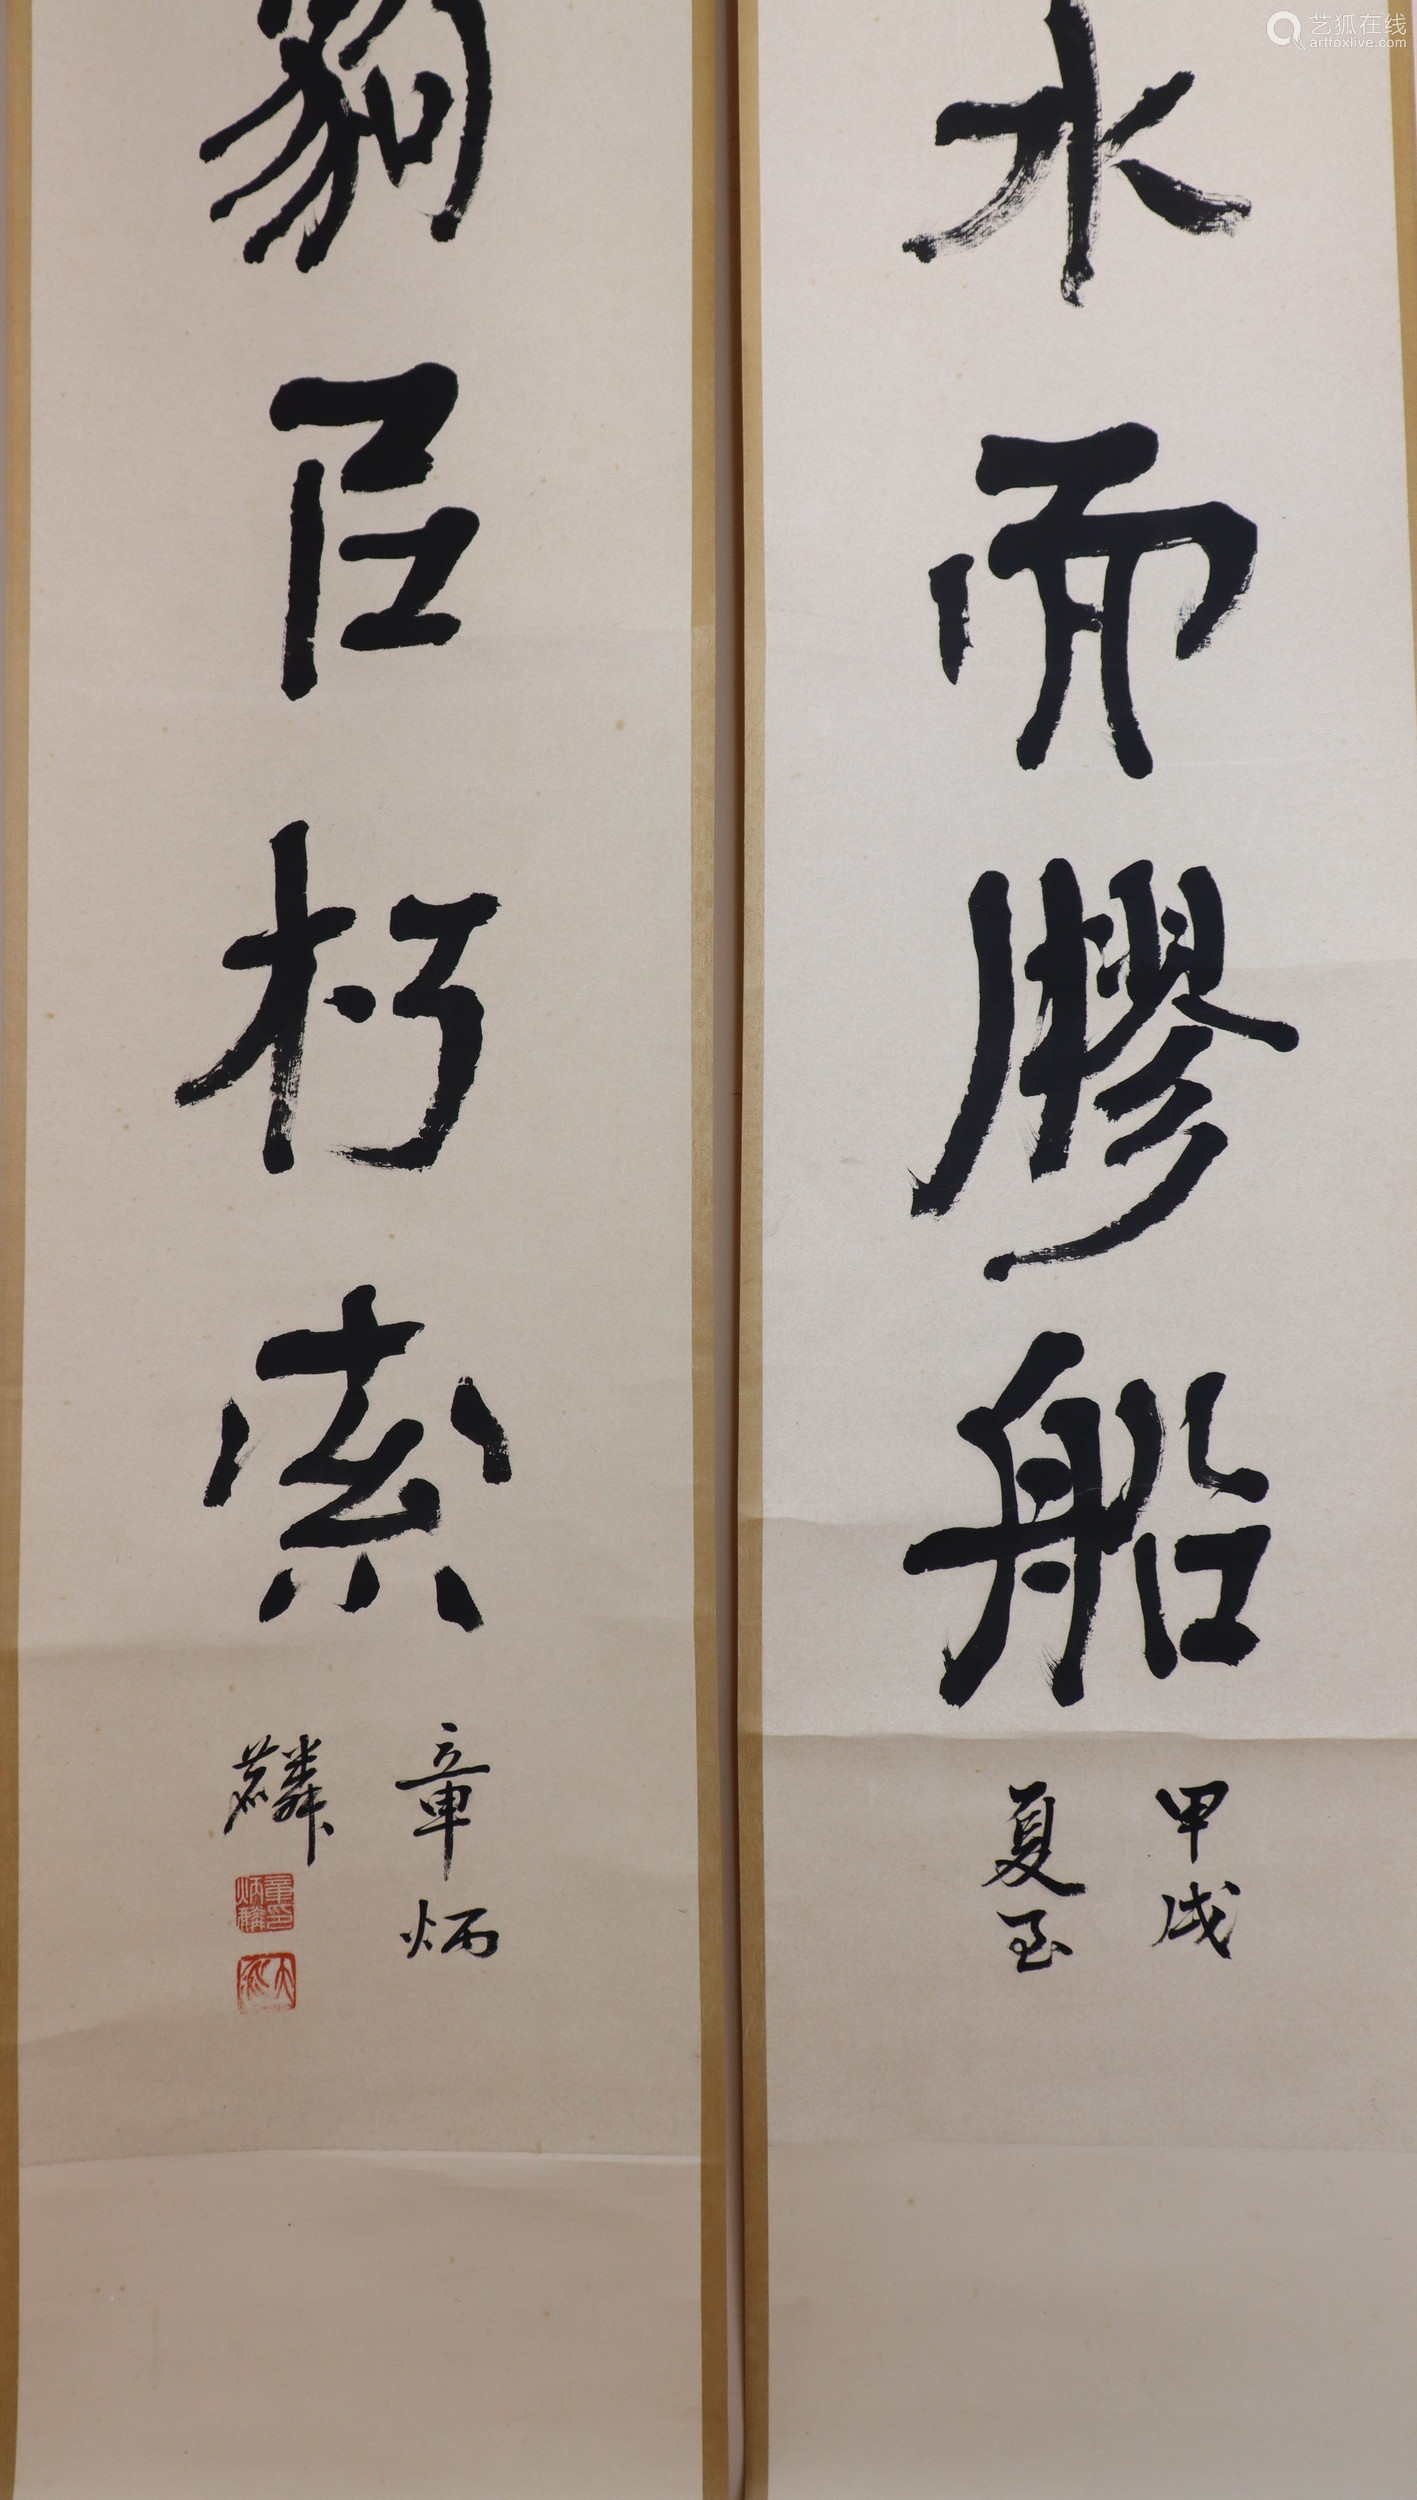 水而膠船
甲戌
夏至
以朽索
章炳
麟
章炳麟印
艺狐在线
artfoxlive.com